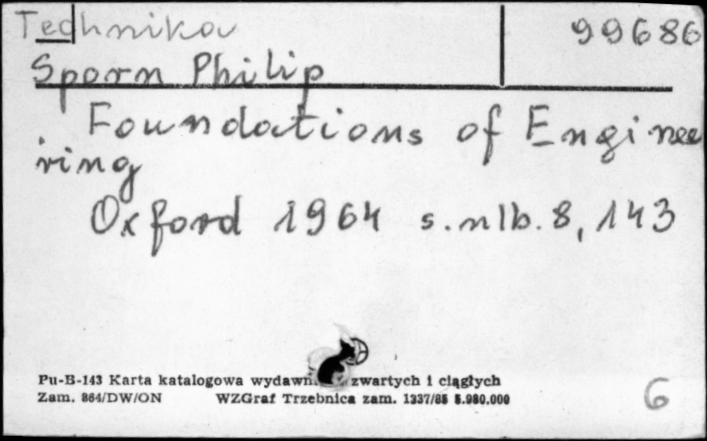 Technika 99686
Sporn Philip
Foundations of Enginee
ring
Oxford 1964 s.nlb. 8, 143
Pu-B-143 Karta katalogowa wydawn. zwartych i ciągłych
Zam. 864/DW/ON WZGraf Trzebnica zam. 1337/85 5.980.000
6